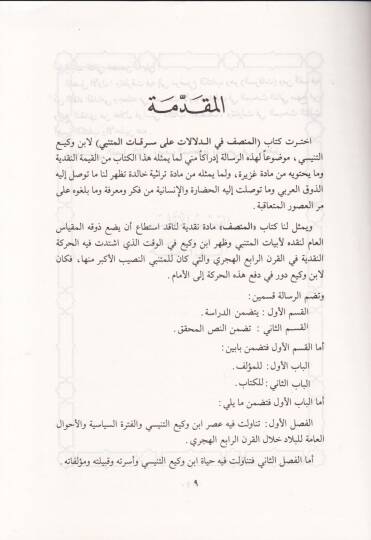 المقدّمة
اخترت كتاب (المنصف في الدلالات على سرقات المتنبي) لابن وكيع
التنيسي، موضوعاً لهذه الرسالة إدراكاً مني لما يمثله هذا الكتاب من القيمة النقدية
وما يحتويه من مادة غزيرة، ولما يمثله من مادة تراثية خالدة تظهر لنا ما توصل إليه
الذوق العربي وما توصلت إليه الحضارة والإنسانية من فكر ومعرفة وما بلغوه على
مر العصور المتعاقبة.
ويمثل لنا كتاب «المنصف» مادة نقدية لناقد استطاع أن يضع ذوقه المقياس
العام لنقده لأبيات المتنبي وظهر ابن وكيع في الوقت الذي اشتدت فيه الحركة
النقدية في القرن الرابع الهجري والتي كان للمتنبي النصيب الأكبر منها، فكان
لابن وكيع دور في دفع هذه الحركة إلى الأمام.
وتضم الرسالة قسمين:
القسم الأول: يتضمن الدراسة.
القسم الثاني: تضمن النص المحقق.
أما القسم الأول فتضمن بابين:
الباب الأول: للمؤلف.
الباب الثاني: للكتاب.
أما الباب الأول فتضمن ما يلي:
الفصل الأول: تناولت فيه عصر ابن وكيع التنيسي والفترة السياسية والأحوال
العامة للبلاد خلال القرن الرابع الهجري.
أما الفصل الثاني فتناولت فيه حياة ابن وكيع التنيسي وأسرته وقبيلته ومؤلفاته.
٩